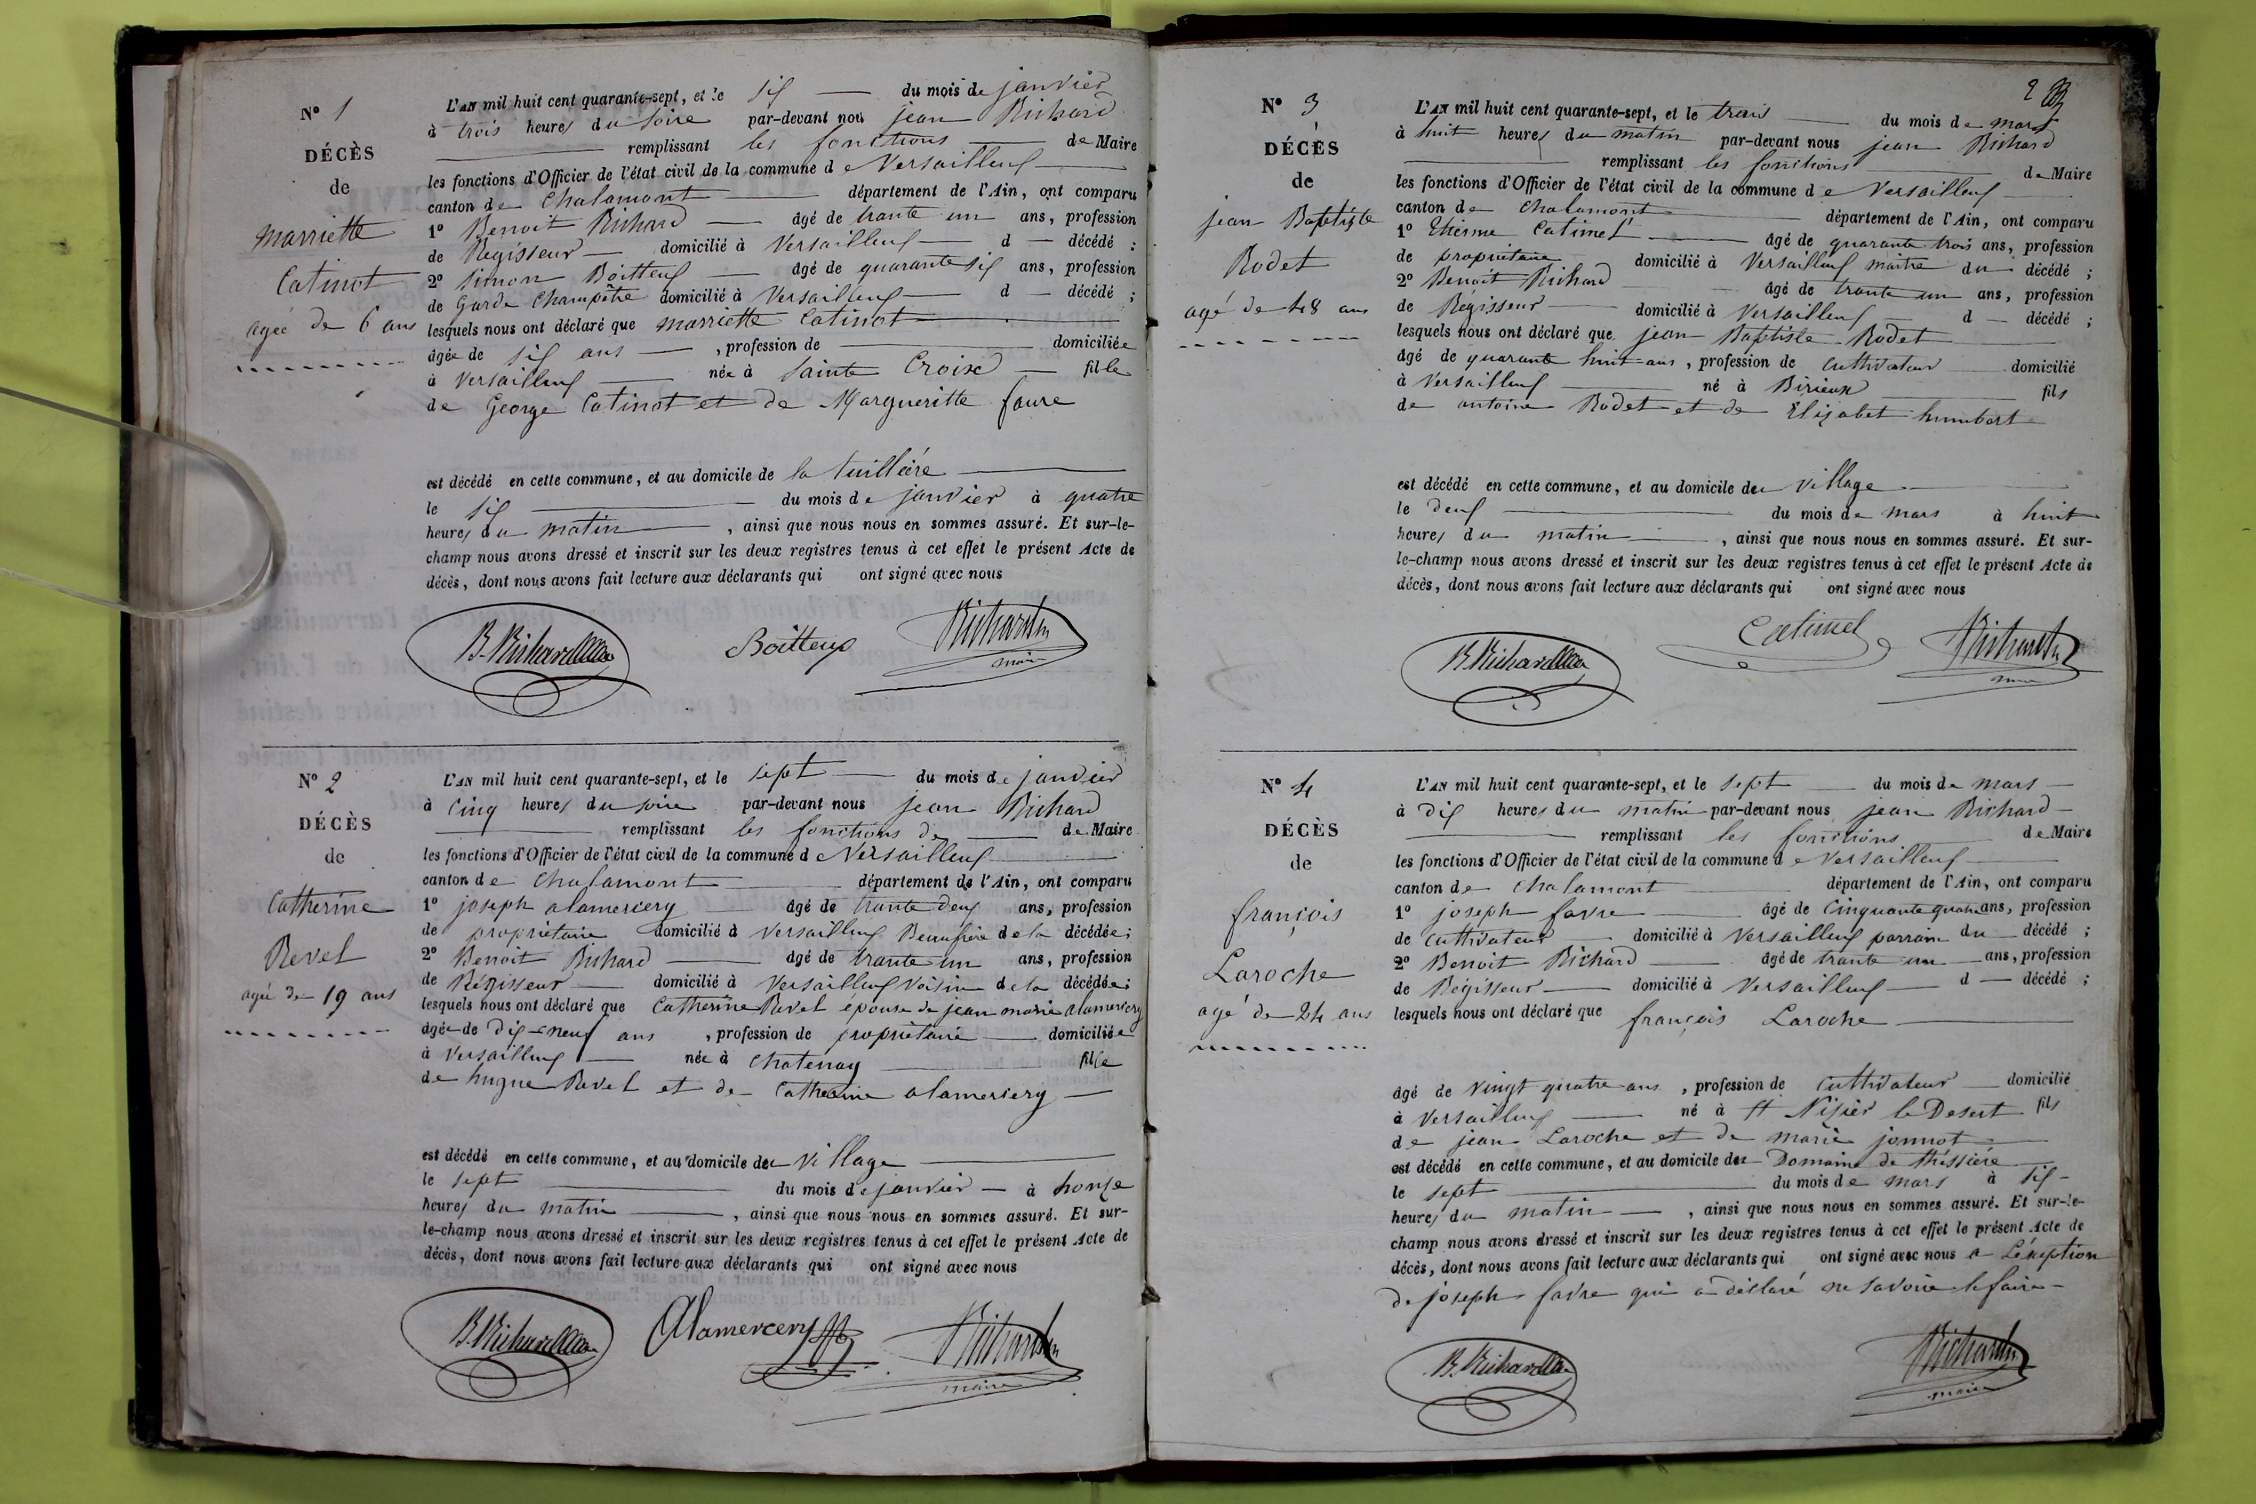 N° 1
DÉCÈS
de
Marriette
Catinot
agée de 6 ans
L'AN mil huit cent quarante-sept, et le six du mois de janvier
à trois heures du soire par-devant nous jean Richard
remplissant les fonctions de Maire
les fonctions d'Officier de l'état civil de la commune de Versailleux
canton de Chalamont département de l'Ain, ont comparu
1° Benoit Richard âgé de trante un ans, profession
de Régisseur domicilié à Versailleux d décédé ;
2° Simon Boitteux âgé de quarante six ans, profession
de Garde Champêtre domicilié à Versailleux d décédé ;
lesquels nous ont déclaré que marriette Catinot
âgée de six ans, profession de domiciliée
à Versailleux née à Sainte Croix fille
de George Catinot et de Margueritte faure
est décédé en cette commune, et au domicile de la tuillière
le six du mois de janvier à quatre
heures du matin, ainsi que nous nous en sommes assuré. Et sur-le-
champ nous avons dressé et inscrit sur les deux registres tenus à cet effet le présent Acte de
décès, dont nous avons fait lecture aux déclarants qui ont signé avec nous
B. Richard Boitteux Richard
maire
N° 2
DÉCÈS
de
Catherine
Revel
agée de 19 ans
L'AN mil huit cent quarante-sept, et le sept du mois de janvier
à cinq heures du soire par-devant nous jean Richard
remplissant les fonctions de de Maire
les fonctions d'Officier de l'état civil de la commune de Versailleux
canton de Chalamont département de l'Ain, ont comparu
1° joseph alamercery âgé de trante deux ans, profession
de propriétaire domicilié à Versailleux Beaufrère de la décédée ;
2° Benoit Richard âgé de trante un ans, profession
de Régisseur domicilié à Versailleux voisin de la décédée ;
lesquels nous ont déclaré que Catherine Revel épouse de jean marie alamercery
âgée de dix-neuf ans, profession de propriétaire domiciliée
à Versailleux née à Chatenay fille
de hugue Revel et de Catherine alamercery
est décédé en cette commune, et au domicile du village
le sept du mois de janvier à honze
heures du matin, ainsi que nous nous en sommes assuré. Et sur-
le-champ nous avons dressé et inscrit sur les deux registres tenus à cet effet le présent Acte de
décès, dont nous avons fait lecture aux déclarants qui ont signé avec nous
B. Richard Alamercery Richard
maire
2
N° 3
DÉCÈS
de
jean Baptiste
Rodet
agé de 48 ans
L'AN mil huit cent quarante-sept, et le trois du mois de mars
à huit heures du matin par-devant nous jean Richard
remplissant les fonctions de Maire
les fonctions d'Officier de l'état civil de la commune de Versailleux
canton de Chalamont département de l'Ain, ont comparu
1° Etienne Catimel âgé de quarante trois ans, profession
de propriétaire domicilié à Versailleux maitre du décédé ;
2° Benoit Richard âgé de trante un ans, profession
de Régisseur domicilié à Versailleux d décédé ;
lesquels nous ont déclaré que jean Baptiste Rodet
âgé de quarante huit ans, profession de cultivateur domicilié
à Versailleux né à Birieux fils
de antoine Rodet et de Elizabet humbert
est décédé en cette commune, et au domicile du village
le deux du mois de mars à huit
heures du matin, ainsi que nous nous en sommes assuré. Et sur-
le-champ nous avons dressé et inscrit sur les deux registres tenus à cet effet le présent Acte de
décès, dont nous avons fait lecture aux déclarants qui ont signé avec nous
B. Richard Catimel Richard
maire
N° 4
DÉCÈS
de
françois
Laroche
agé de 24 ans
L'AN mil huit cent quarante-sept, et le sept du mois de mars
à dix heures du matin par-devant nous jean Richard
remplissant les fonctions de Maire
les fonctions d'Officier de l'état civil de la commune de Versailleux
canton de Chalamont département de l'Ain, ont comparu
1° joseph favre âgé de Cinquante quatre ans, profession
de cultivateur domicilié à Versailleux parrain du décédé ;
2° Benoit Richard âgé de trante un ans, profession
de Régisseur domicilié à Versailleux d décédé ;
lesquels nous ont déclaré que françois Laroche
âgé de vingt quatre ans, profession de cultivateur domicilié
à Versailleux né à St Nizier le Desert fils
de jean Laroche et de marie jonnot
est décédé en cette commune, et au domicile du Domaine de
le sept du mois de mars à six
heures du matin, ainsi que nous nous en sommes assuré. Et sur-le-
champ nous avons dressé et inscrit sur les deux registres tenus à cet effet le présent Acte de
décès, dont nous avons fait lecture aux déclarants qui ont signé avec nous a Léxeption
de joseph favre qui a déclaré ne savoire le faire
B. Richard Richard
maire